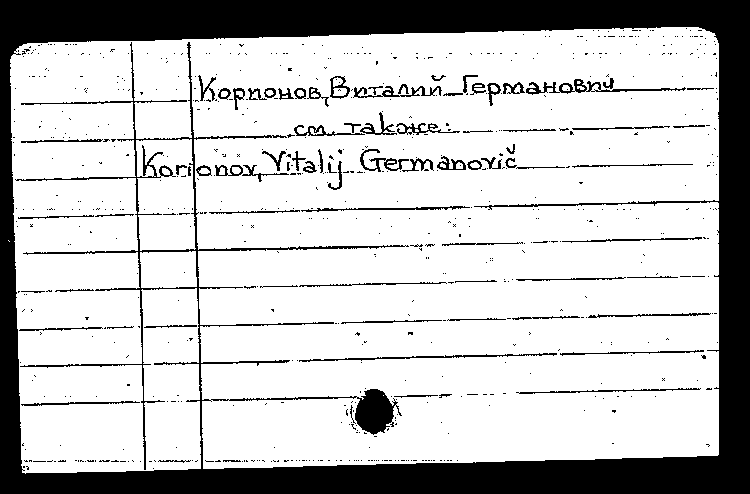 Корионов, Виталий Германович
см. также:
Korionov, Vitalij Germanovič